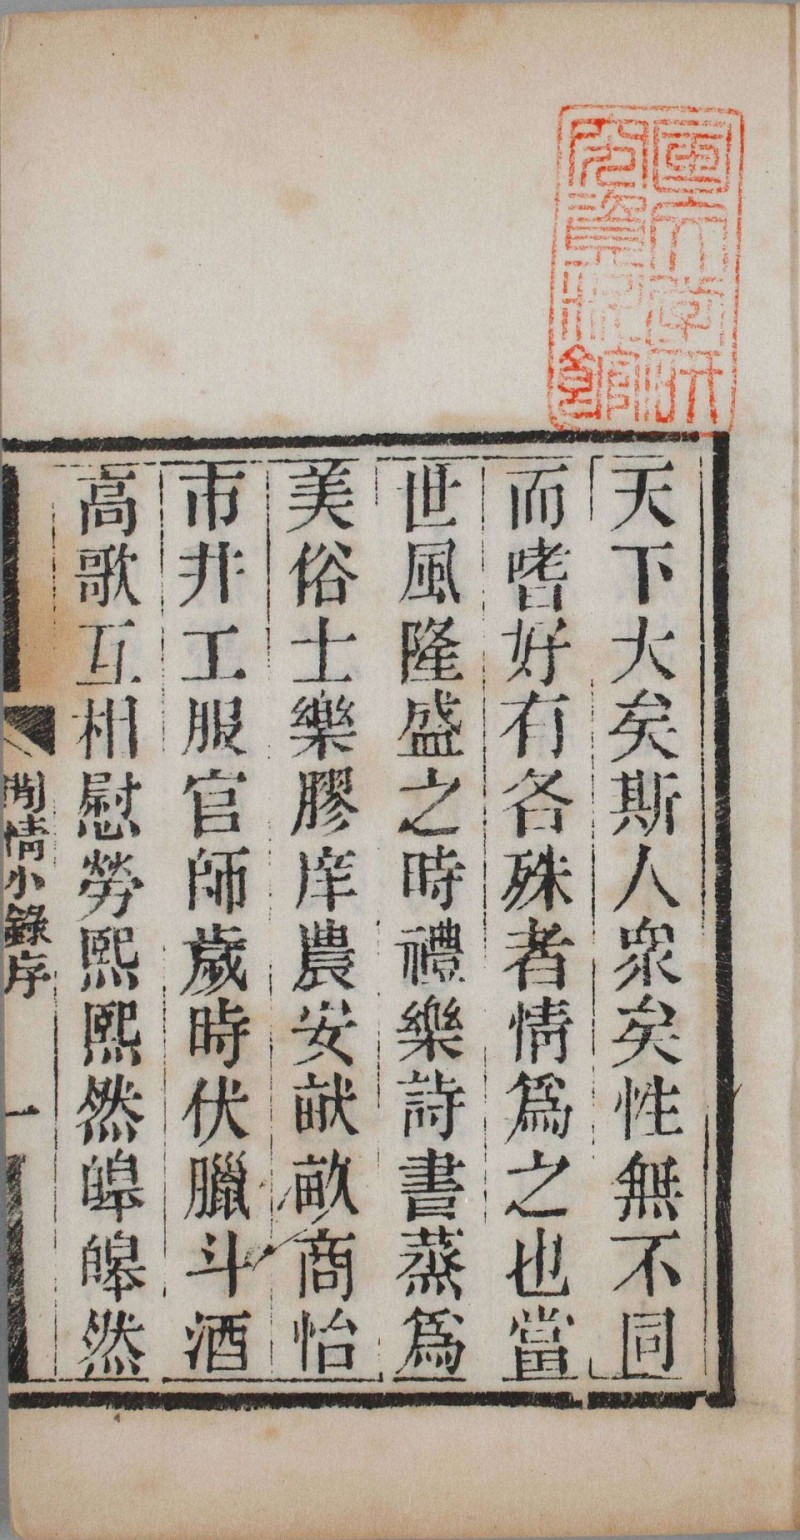 天下大矣斯人衆矣性無不同
而嗜好有各殊者情爲之也當
世風隆盛之時禮樂詩書蒸爲
美俗士樂膠庠農安畎畝商怡
市井工服官師歲時伏臘斗酒
高歌互相慰勞熙熙然皥皥然
閒情小錄序
一
國文學研
究資料館